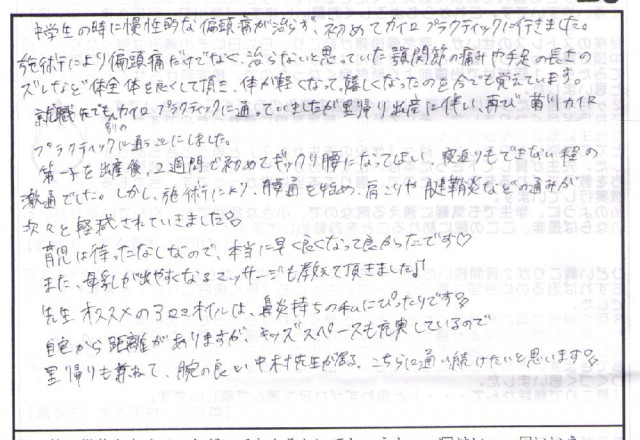 中学生の時に慢性的な偏頭痛が治らず、初めてカイロプラクティックに行きました。
施術により偏頭痛だけでなく、治らないと思っていた顎関節の痛みや手足の長さの
ズレなど体全体を良くして頂き、体が軽くなって嬉しくなったのを今でも覚えています。
就職先でも別のカイロプラクティックに通っていましたが里帰り出産に伴い、再び菊川カイロ
プラクティックに通うことにしました。
第一子を出産後、2週間で初めてギックリ腰になってしまい、寝返りもできない程の
激通でした。しかし、施術により、腰通を始め、肩こりや腱鞘炎などの通みが
次々と軽減されていきました
育児は待ったなしなので、本当に早く良くなって良かったです♡
また、母乳が出やすくなるマッサージも教えて頂きました♪
先生オススメのアロマオイルは、鼻炎持ちの私にぴったりです
自宅から距離がありますが、キッズスペースも充実しているので
里帰りも兼ねて、腕の良い中村先生が居る、こちらに通い続けたいと思います